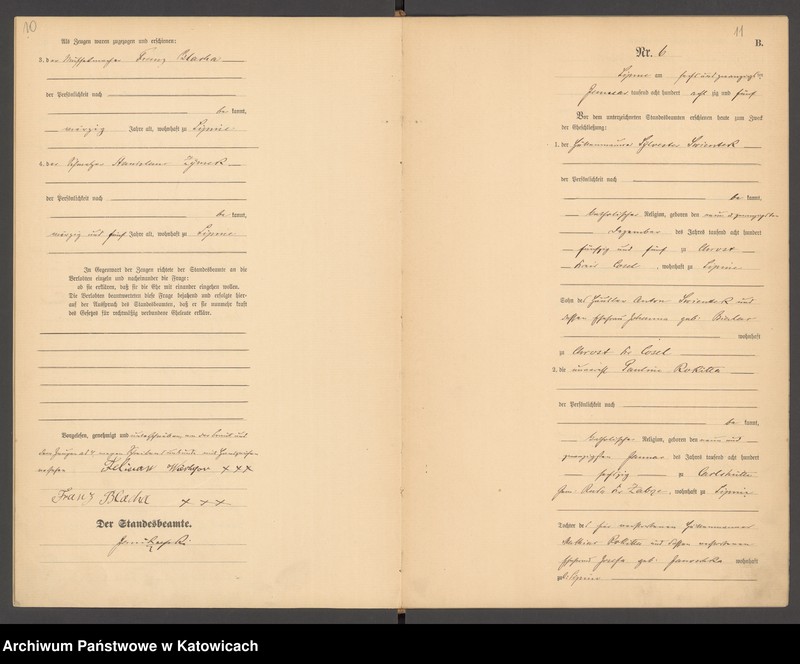 10
Als Zeugen waren zugezogen und erschienen:
3. der Franz Blacha
der Persönlichkeit nach
be kannt,
vierzig Jahre alt, wohnhaft zu Lipine
4. der Stanislaus
der Persönlichkeit nach
be kannt,
vierzig und fünf Jahre alt, wohnhaft zu Lipine
In Gegenwart der Zeugen richtete der Standesbeamte an die
Verlobten einzeln und nacheinander die Frage:
ob sie erklären, daß sie die Ehe mit einander eingehen wollen.
Die Verlobten beantworteten diese Frage bejahend und erfolgte hier-
auf der Ausspruch des Standesbeamten, daß er sie nunmehr kraft
des Gesetzes für rechtmäßig verbundene Eheleute erkläre.
Vorgelesen, genehmigt und unterschrieben von der Braut und
wegen mit Handzeichen
versehen xxx
Franz Blacha xxx
Der Standesbeamte.
11
B.
Nr. 6
Lipine am sechs und zwanzigsten
Januar tausend acht hundert acht zig und fünf
Vor dem unterzeichneten Standesbeamten erschienen heute zum Zweck
der Eheschließung:
1. der Hüttenmann Sylvester Swientek
der Persönlichkeit nach
be kannt,
katholischer Religion, geboren den neun und zwanzigsten
Dezember des Jahres tausend acht hundert
fünfzig und fünf zu
Kreis Cosel, wohnhaft zu Lipine
Sohn des Häusler Anton Swientek und
dessen Ehefrau Johanna geb.
wohnhaft
zu Kr Cosel
2. die Pauline Rokitta
der Persönlichkeit nach
be kannt,
katholischer Religion, geboren den neun und
zwanzigsten Januar des Jahres tausend acht hundert
sechszig zu
Kr Zabrze, wohnhaft zu Lipine
Tochter des verstorbenen Hüttenmannes
Rokitta und dessen verstorbenen
Ehefrau Josefa geb. Januschka wohnhaft
zu Lipine
Archiwum Państwowe w Katowicach